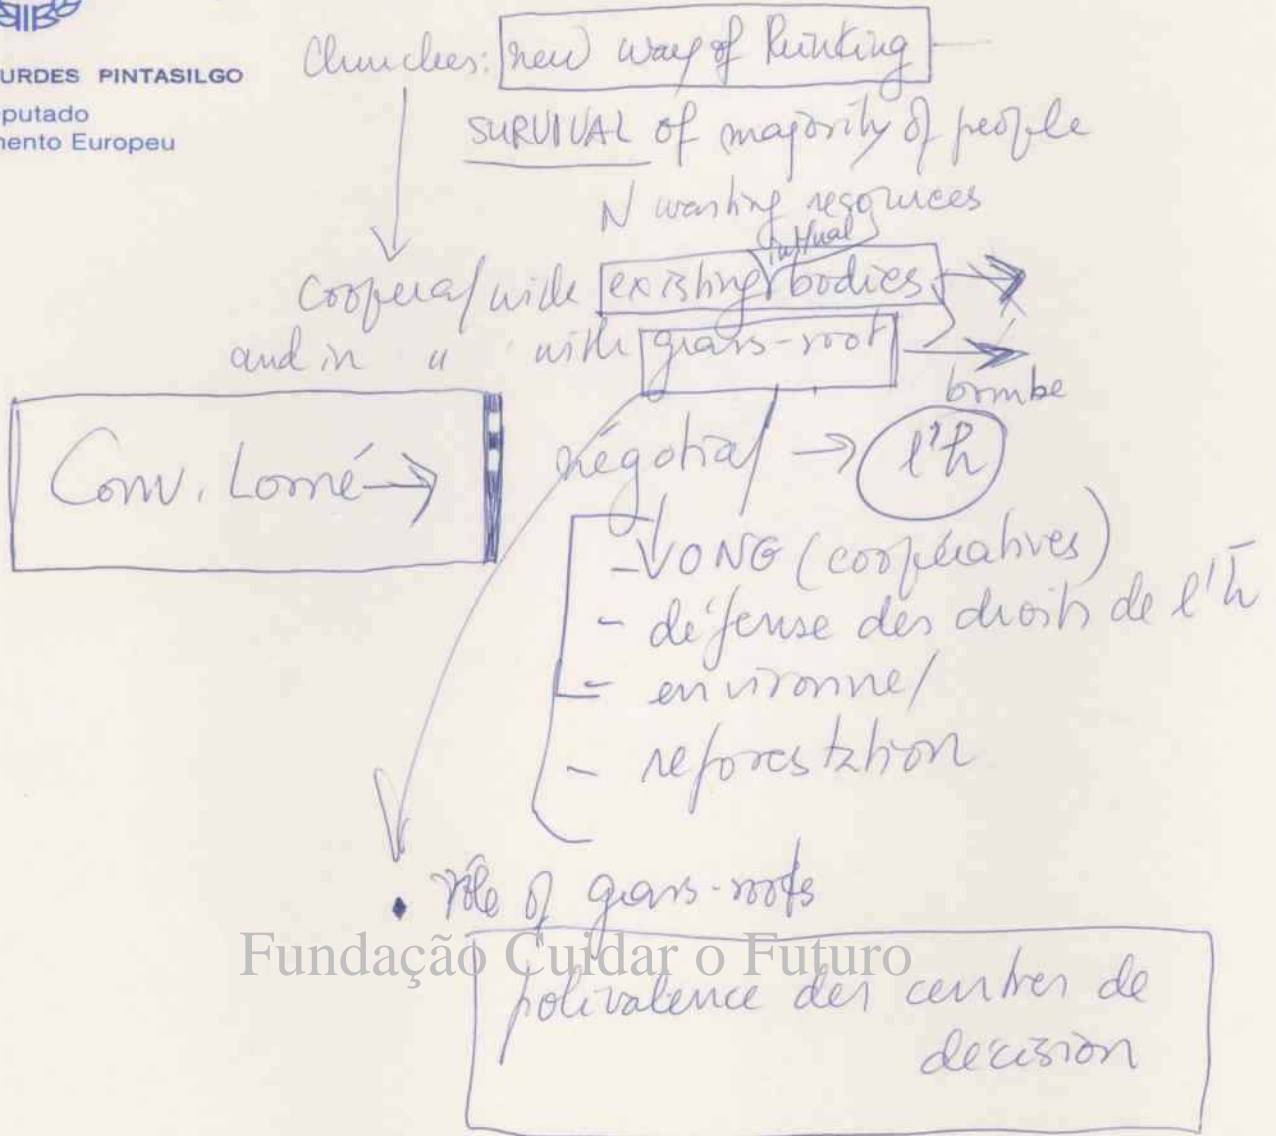 URDES PINTASILGO
putado
mento Europeu
Churches: new way of thinking
SURVIVAL of majority of people
N wasting resources
coopera/ with existing bodies
and in " with grass-root
bombe
Conv. Lomé →
négotia/ → l'h
- ONG (coopératives)
- défense des droits de l'h
- environne/
- reforestation
• rôle of grass-roots
Fundação Cuidar o Futuro
polivalence des centres de
decision